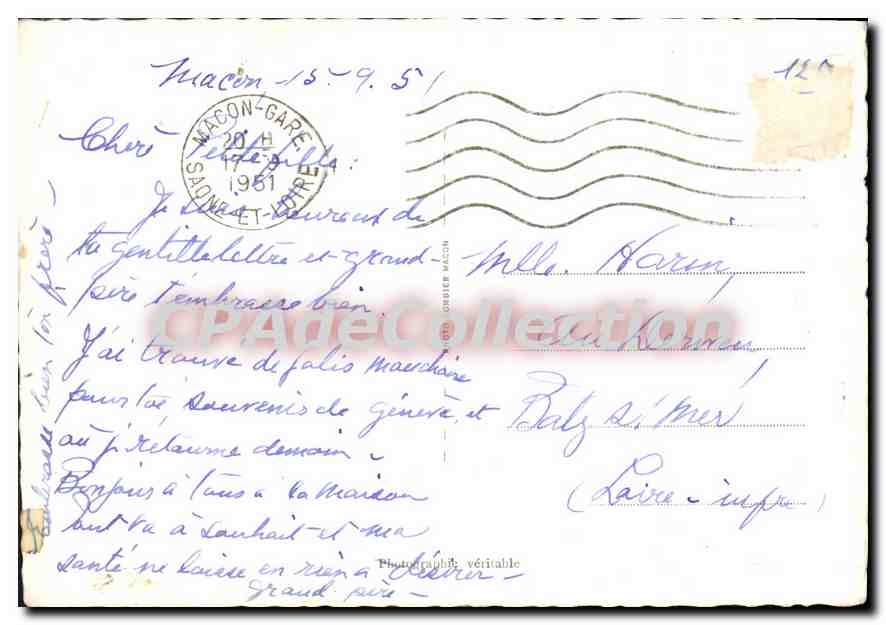 Macon 15.9.51
12
MACON-GARE.
20 H
17-9
1951
SAONE-ET-LOIRE
Chere Petite fille:
Je suis heureux de
ta gentille lettre et grand-
père t'embrasse bien.
J'ai trouvé de jolis mouchoirs
pour toi souvenis de génève et
où je retourne demain -
Bonjour à tous à la maison
tout va à souhait et ma
santé ne laisse en rien à désirer -
grand père -
Embrasse bien ton frère -
PHOTO COMBIER MACON
Photographie véritable
CPAdeCollection
Mlle. Harin
Batz s/ Mer
(Loire-infre)